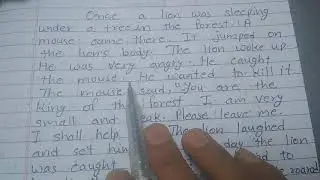 Once a lion was sleeping
under a tree in the forest. A
mouse came there. It jumped on
the lion's body. The lion woke up
He was very angry. He caught
the mouse. He wanted to kill it.
The mouse said, "You are the
king of the forest I am very
small and weak. Please leave me.
I shall help The lion laughed
and set him day the lion
was caught to
he roared